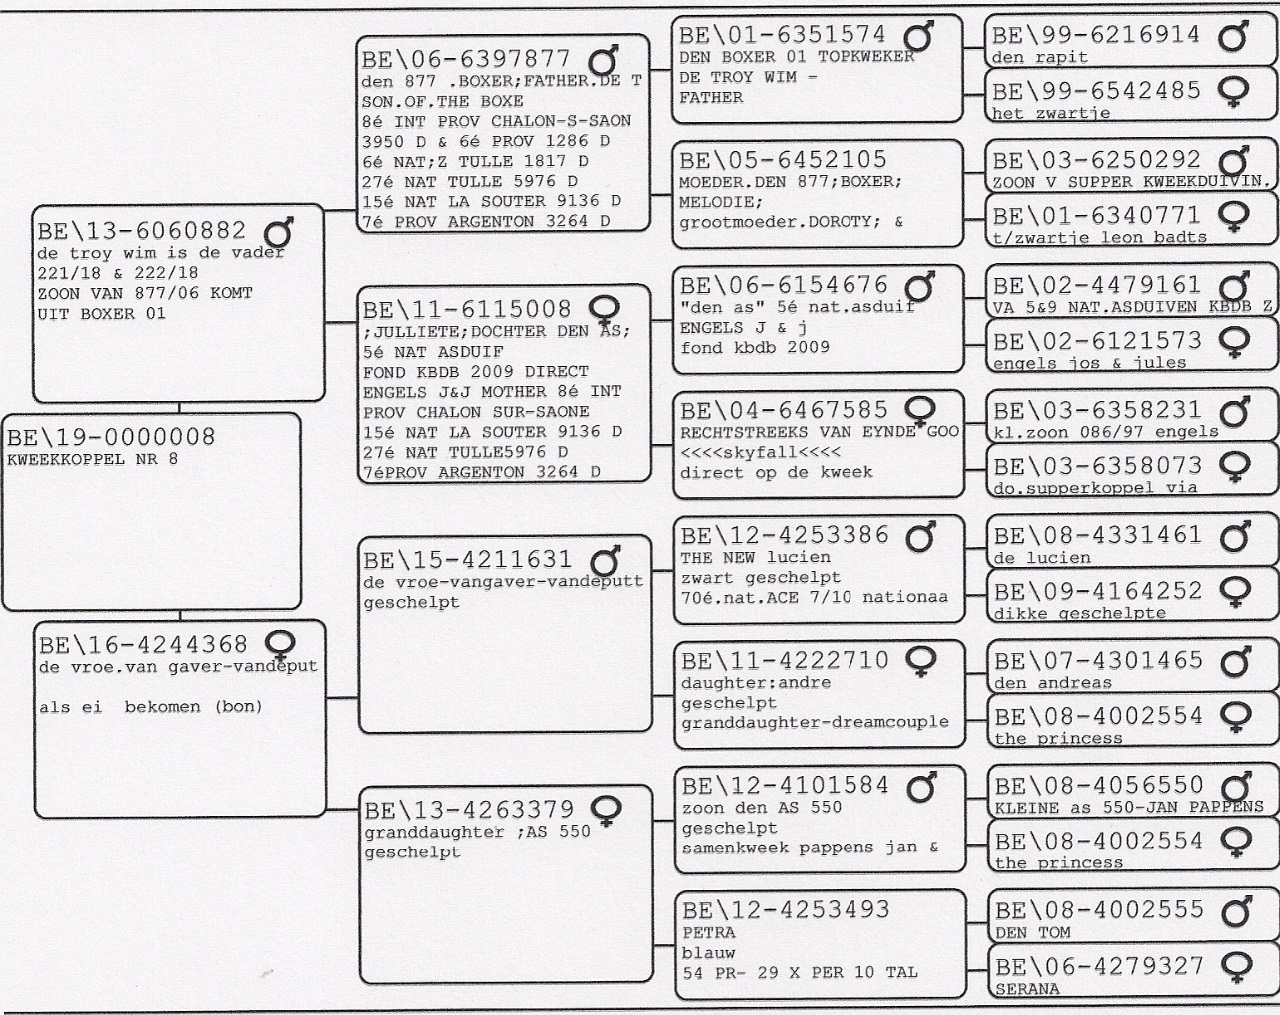 BE\19-0000008
KWEEKKOPPEL NR 8
BE\13-6060882 ♂
de troy wim is de vader
221/18 & 222/18
ZOON VAN 877/06 KOMT
UIT BOXER 01
BE\16-4244368 ♀
de vroe.van gaver-vandeput
als ei bekomen (bon)
BE\06-6397877 ♂
den 877 .BOXER;FATHER.DE T
SON.OF.THE BOXE
8é INT PROV CHALON-S-SAON
3950 D & 6é PROV 1286 D
6é NAT;Z TULLE 1817 D
27é NAT TULLE 5976 D
15é NAT LA SOUTER 9136 D
7é PROV ARGENTON 3264 D
BE\11-6115008 ♀
;JULLIETE;DOCHTER DEN AS;
5é NAT ASDUIF
FOND KBDB 2009 DIRECT
ENGELS J&J MOTHER 8é INT
PROV CHALON SUR-SAONE
15é NAT LA SOUTER 9136 D
27é NAT TULLE5976 D
7éPROV ARGENTON 3264 D
BE\15-4211631 ♂
de vroe-vangaver-vandeputt
geschelpt
BE\13-4263379 ♀
granddaughter ;AS 550
geschelpt
BE\01-6351574 ♂
DEN BOXER 01 TOPKWEKER
DE TROY WIM =
FATHER
BE\05-6452105
MOEDER.DEN 877;BOXER;
MELODIE;
grootmoeder.DOROTY; &
BE\06-6154676 ♂
"den as" 5é nat.asduif
ENGELS J & j
fond kbdb 2009
BE\04-6467585 ♀
RECHTSTREEKS VAN EYNDE GOO
<<<<skyfall<<<<
direct op de kweek
BE\12-4253386 ♂
THE NEW lucien
zwart geschelpt
70é.nat.ACE 7/10 nationaa
BE\11-4222710 ♀
daughter:andre
geschelpt
granddaughter-dreamcouple
BE\12-4101584 ♂
zoon den AS 550
geschelpt
samenkweek pappens jan &
BE\12-4253493
PETRA
blauw
54 PR- 29 X PER 10 TAL
BE\99-6216914 ♂
den rapit
BE\99-6542485 ♀
het zwartje
BE\03-6250292 ♂
ZOON V SUPPER KWEEKDUIVIN.
BE\01-6340771 ♀
t/zwartje leon badts
BE\02-4479161 ♂
VA 5&9 NAT.ASDUIVEN KBDB Z
BE\02-6121573 ♀
engels jos & jules
BE\03-6358231 ♂
kl.zoon 086/97 engels
BE\03-6358073 ♀
do.supperkoppel via
BE\08-4331461 ♂
de lucien
BE\09-4164252 ♀
dikke geschelpte
BE\07-4301465 ♂
den andreas
BE\08-4002554 ♀
the princess
BE\08-4056550 ♂
KLEINE as 550-JAN PAPPENS
BE\08-4002554 ♀
the princess
BE\08-4002555 ♂
DEN TOM
BE\06-4279327 ♀
SERANA